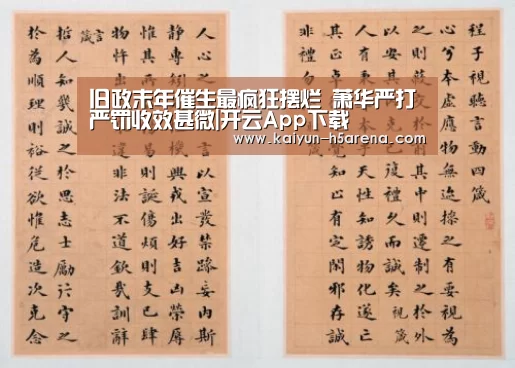 旧政末年催生最疯狂摆烂 萧华严打
严罚收效甚微|开云App下载
www.kaiyun-h5arena.com
程子視聽言動四箴
心兮本虛應物無迹操之有要視為
之則 其中則遷制之於外
以安其 己復禮久而誠矣 視箴
本乎天性知誘物化遂亡
其正 知止有定閑邪存誠
非禮勿
人心之 言以宣發禁躁妄內斯
靜專 機興戎出好吉凶榮辱
惟其 易則誕傷煩則支己肆
物忤出 違非法不道欽哉訓辭
言箴
哲人知幾誠之於思志士勵行守之
於為順理則裕從欲惟危造次克念